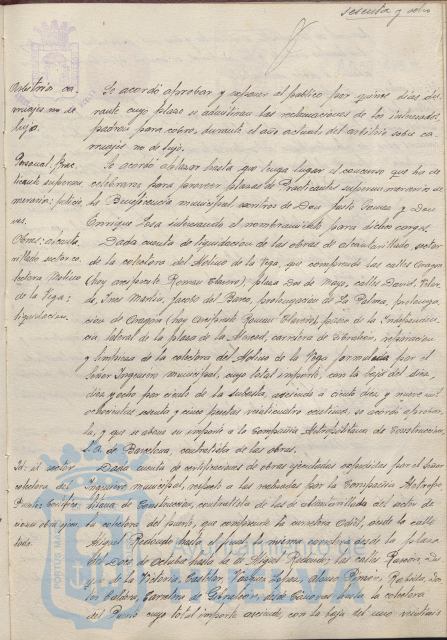 sesenta y ocho
Arbitrio ca-
rruajes no de
lujo.
Se acordó aprobar y exponer al público por quince días du-
rante cuyo plazo se admitirán las reclamaciones de los interesados,
padrón para cobro, durante el año actual del arbitrio sobre ca-
rruajes no de lujo.
Personal: Prac-
ticante supernu-
merario: peticio-
nes.
Se acordó aplazar hasta que tenga lugar el concurso que ha de
celebrarse para proveer plazas de Practicantes supernumerarios de
la Beneficencia municipal escritos de Don Justo y Don
Enrique Sosa interesando el nombramiento para dichos cargos.
Obras: alcanta-
rillado sector co-
lectora Molino
de la Vega:
liquidación.
Dada cuenta de liquidación de las obras de alcantarillado sector
de la colectora del Molino de la Vega, que comprende las calles Aragón
(hoy Crucero Claveros), plaza Dos de Mayo, calles David, Velar-
de, Inés Martín, Jacobo del Barco, prolongación de La Palma, prolonga-
ción de Aragón (hoy paseo de la Independen-
cia, lateral de la plaza de la Merced, carretera de Gibraleón, reparación
y limpieza de la colectora del Molino de la Vega formulada por el
Señor Ingeniero municipal, cuyo total importe, con la baja del diez
diez y ocho por ciento de la subasta, asciende a ciento diez y nueve mil
ochocientas y cinco pesetas veinticuatro céntimos, se acordó aprobar-
la, y que se abone su importe a la Compañía Metropolitana de Construcción,
S. A. de Barcelona, contratista de las obras.
Id: id sector
colectora del
Puerto: Certifica-
ciones obra ejecu-
tada.
Dada cuenta de certificaciones de obras ejecutadas expedidas por el Señor
Ingeniero municipal, respecto a las realizadas por la Compañía Metropo-
litana de Construcción, contratista de las de alcantarillado del sector de
la colectora del puerto, que comprende la carretera Odiel, desde la calle
Miguel Redondo hasta el final, la misma carretera desde la plaza
del Doce de Octubre hasta la de Miguel Redondo; las calles Rascón, Du-
que de la Victoria, Castelar, Vázquez López, Alonso Pinzón, Rábida, Ra-
fos Calabria, Carretera de Gibraleón, desde hasta la colectora
del Puerto cuyo total importe asciende, con la baja del uno veintiséis
Ayuntamiento de
PORTUS MARIS